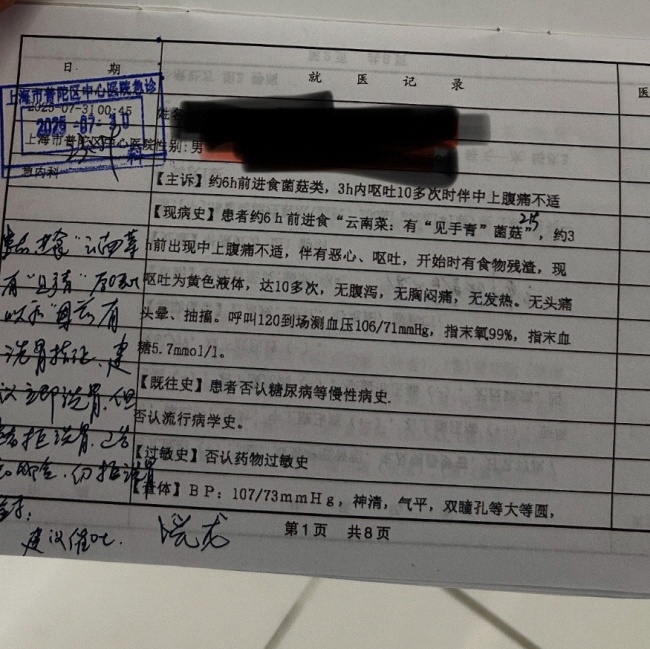 日 期
就 医 记 录
医
上海市普陀区中心医院急诊
2025-07-31 00:45
2025-07-30
上海市普陀区中心医院性别:男
急内科
【主诉】约6h前进食菌菇类，3h内呕吐10多次时伴中上腹痛不适
【现病史】患者约6h前进食“云南菜：有“见手青”菌菇”，约3
h前出现中上腹痛不适，伴有恶心、呕吐，开始时有食物残渣，现
呕吐为黄色液体，达10多次，无腹泻，无胸闷痛，无发热。无头痛
头晕、抽搐。呼叫120到场测血压106/71mmHg，指末氧99%，指末血
糖5.7mmol/l。
【既往史】患者否认糖尿病等慢性病史.
否认流行病学史。
【过敏史】否认药物过敏史
【查体】BP：107/73mmHg，神清，气平，双瞳孔等大等圆，
第1页 共8页
云南菜
有
有
洗胃指征、建
议立即洗胃，但
拒洗胃
仍拒洗胃
建议催吐.